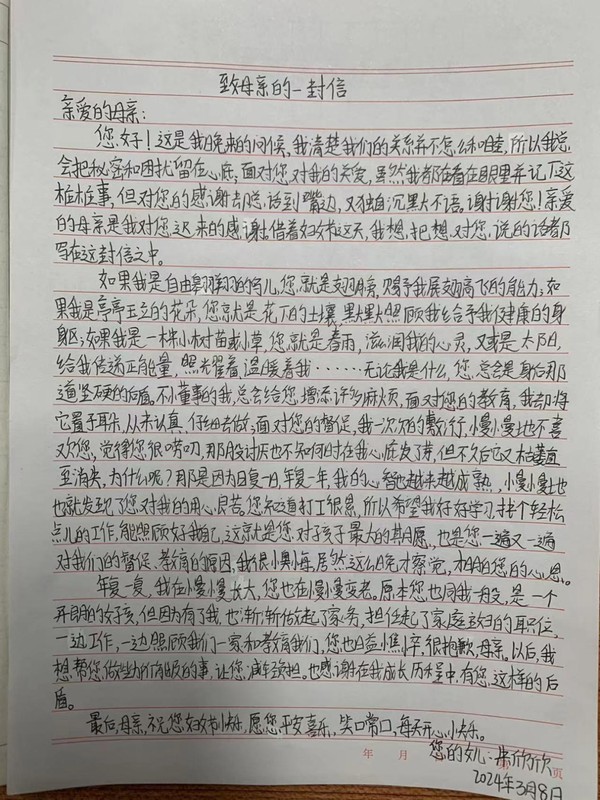 致母亲的一封信
亲爱的母亲:
您好!这是我晚来的问候,我清楚我们的关系并不怎么和睦,所以我总
会把秘密和困扰留在心底,面对您对我的关爱,虽然我都看在眼里并记下这
桩桩事,但对您的感谢去总话到嘴边,又独自沉默不语。谢谢您!亲爱
的母亲是我对您迟来的感谢!借着妇女节这天,我想把想对您说的话都
写在这封信之中。
如果我是自由翱翔的鸟儿,您就是翅膀,赐予我展翅高飞的能力;如
果我是亭亭玉立的花朵,您就是花下的土壤,默默照顾我给予我健康的身
躯;如果我是一株小树苗或小草,您就是春雨,滋润我的心灵,又或是太阳,
给我传送正能量,照耀着,温暖着我……无论我是什么,您总会是身后那
道坚硬的后盾。不懂事的我,总会给您增添许多麻烦,面对您的教育,我却将
它置于耳朵,从未认真仔细去做,面对您的督促,我一次次的敷衍,慢慢地不喜
欢您,觉得您很唠叨,那股讨厌也不知何时在我心底发了芽,但不久后它又枯萎直
至消失,为什么呢?那是因为日复一日,年复一年,我的心智也越来越成熟,慢慢地
也就发现了您对我的用心良苦。您知道打工很累,所以希望我好好学习,找个轻松
点儿的工作,能照顾好我自己,这就是您对孩子最大的期愿,也是您一遍又一遍
对我们的督促、教育的原因,我很懊悔,居然这么晚才察觉,明白您的心思。
年复一复,我在慢慢长大,您也在慢慢变老。原本您也同我一般,是一个
开朗的女孩,但因为有了我,也渐渐做起了家务,担任起了家庭主妇的职位,
一边工作,一边照顾我们一家和教育我们,您也日益憔悴,很抱歉,母亲。以后,我
想帮您做些力所能及的事,让您减轻负担。也感谢在我成长历程中,有您这样的后
盾。
最后,母亲,祝您妇女节快乐,愿您平安喜乐,笑口常口,每天开心快乐。
年 月 日 第 页
您的女儿:朱欣欣
2024年3月8日